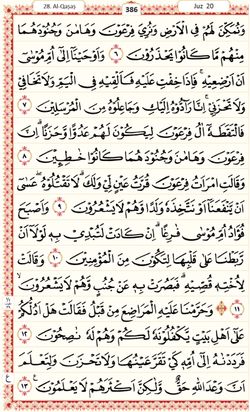 28. Al-Qaṣaṣ 386 Juz 20
وَنُمَكِّنَ لَهُمْ فِي الْاَرْضِ وَنُرِيَ فِرْعَوْنَ وَهَامٰنَ وَجُنُوْدَهُمَا
مِنْهُمْ مَّا كَانُوْا يَحْذَرُوْنَ ۶ وَاَوْحَيْنَاۤ اِلٰٓى اُمِّ مُوْسٰٓى
اَنْ اَرْضِعِيْهِ ۚ فَاِذَا خِفْتِ عَلَيْهِ فَاَلْقِيْهِ فِي الْيَمِّ وَلَا تَخَافِيْ
وَلَا تَحْزَنِيْ ۚ اِنَّا رَآدُّوْهُ اِلَيْكِ وَجَاعِلُوْهُ مِنَ الْمُرْسَلِيْنَ ۷
فَالْتَقَطَهٗٓ اٰلُ فِرْعَوْنَ لِيَكُوْنَ لَهُمْ عَدُوًّا وَّحَزَنًا ؕ اِنَّ
فِرْعَوْنَ وَهَامٰنَ وَجُنُوْدَهُمَا كَانُوْا خٰطِـِٕيْنَ ۸
وَقَالَتِ امْرَاَتُ فِرْعَوْنَ قُرَّتُ عَيْنٍ لِّيْ وَلَكَ ؕ لَا تَقْتُلُوْهُ ۖ عَسٰٓى
اَنْ يَّنْفَعَنَاۤ اَوْ نَتَّخِذَهٗ وَلَدًا وَّهُمْ لَا يَشْعُرُوْنَ ۹ وَاَصْبَحَ
فُؤَادُ اُمِّ مُوْسٰى فٰرِغًا ؕ اِنْ كَادَتْ لَتُبْدِيْ بِهٖ لَوْلَاۤ اَنْ
رَّبَطْنَا عَلٰى قَلْبِهَا لِتَكُوْنَ مِنَ الْمُؤْمِنِيْنَ ۱۰ وَقَالَتْ
لِاُخْتِهٖ قُصِّيْهِ ؗ فَبَصُرَتْ بِهٖ عَنْ جُنُبٍ وَّهُمْ لَا يَشْعُرُوْنَ
۱۱ وَحَرَّمْنَا عَلَيْهِ الْمَرَاضِعَ مِنْ قَبْلُ فَقَالَتْ هَلْ اَدُلُّكُمْ
عَلٰٓى اَهْلِ بَيْتٍ يَّكْفُلُوْنَهٗ لَكُمْ وَهُمْ لَهٗ نٰصِحُوْنَ ۱۲
فَرَدَدْنٰهُ اِلٰٓى اُمِّهٖ كَيْ تَقَرَّ عَيْنُهَا وَلَا تَحْزَنَ وَلِتَعْلَمَ
اَنَّ وَعْدَ اللّٰهِ حَقٌّ وَّلٰكِنَّ اَكْثَرَهُمْ لَا يَعْلَمُوْنَ ۱۳